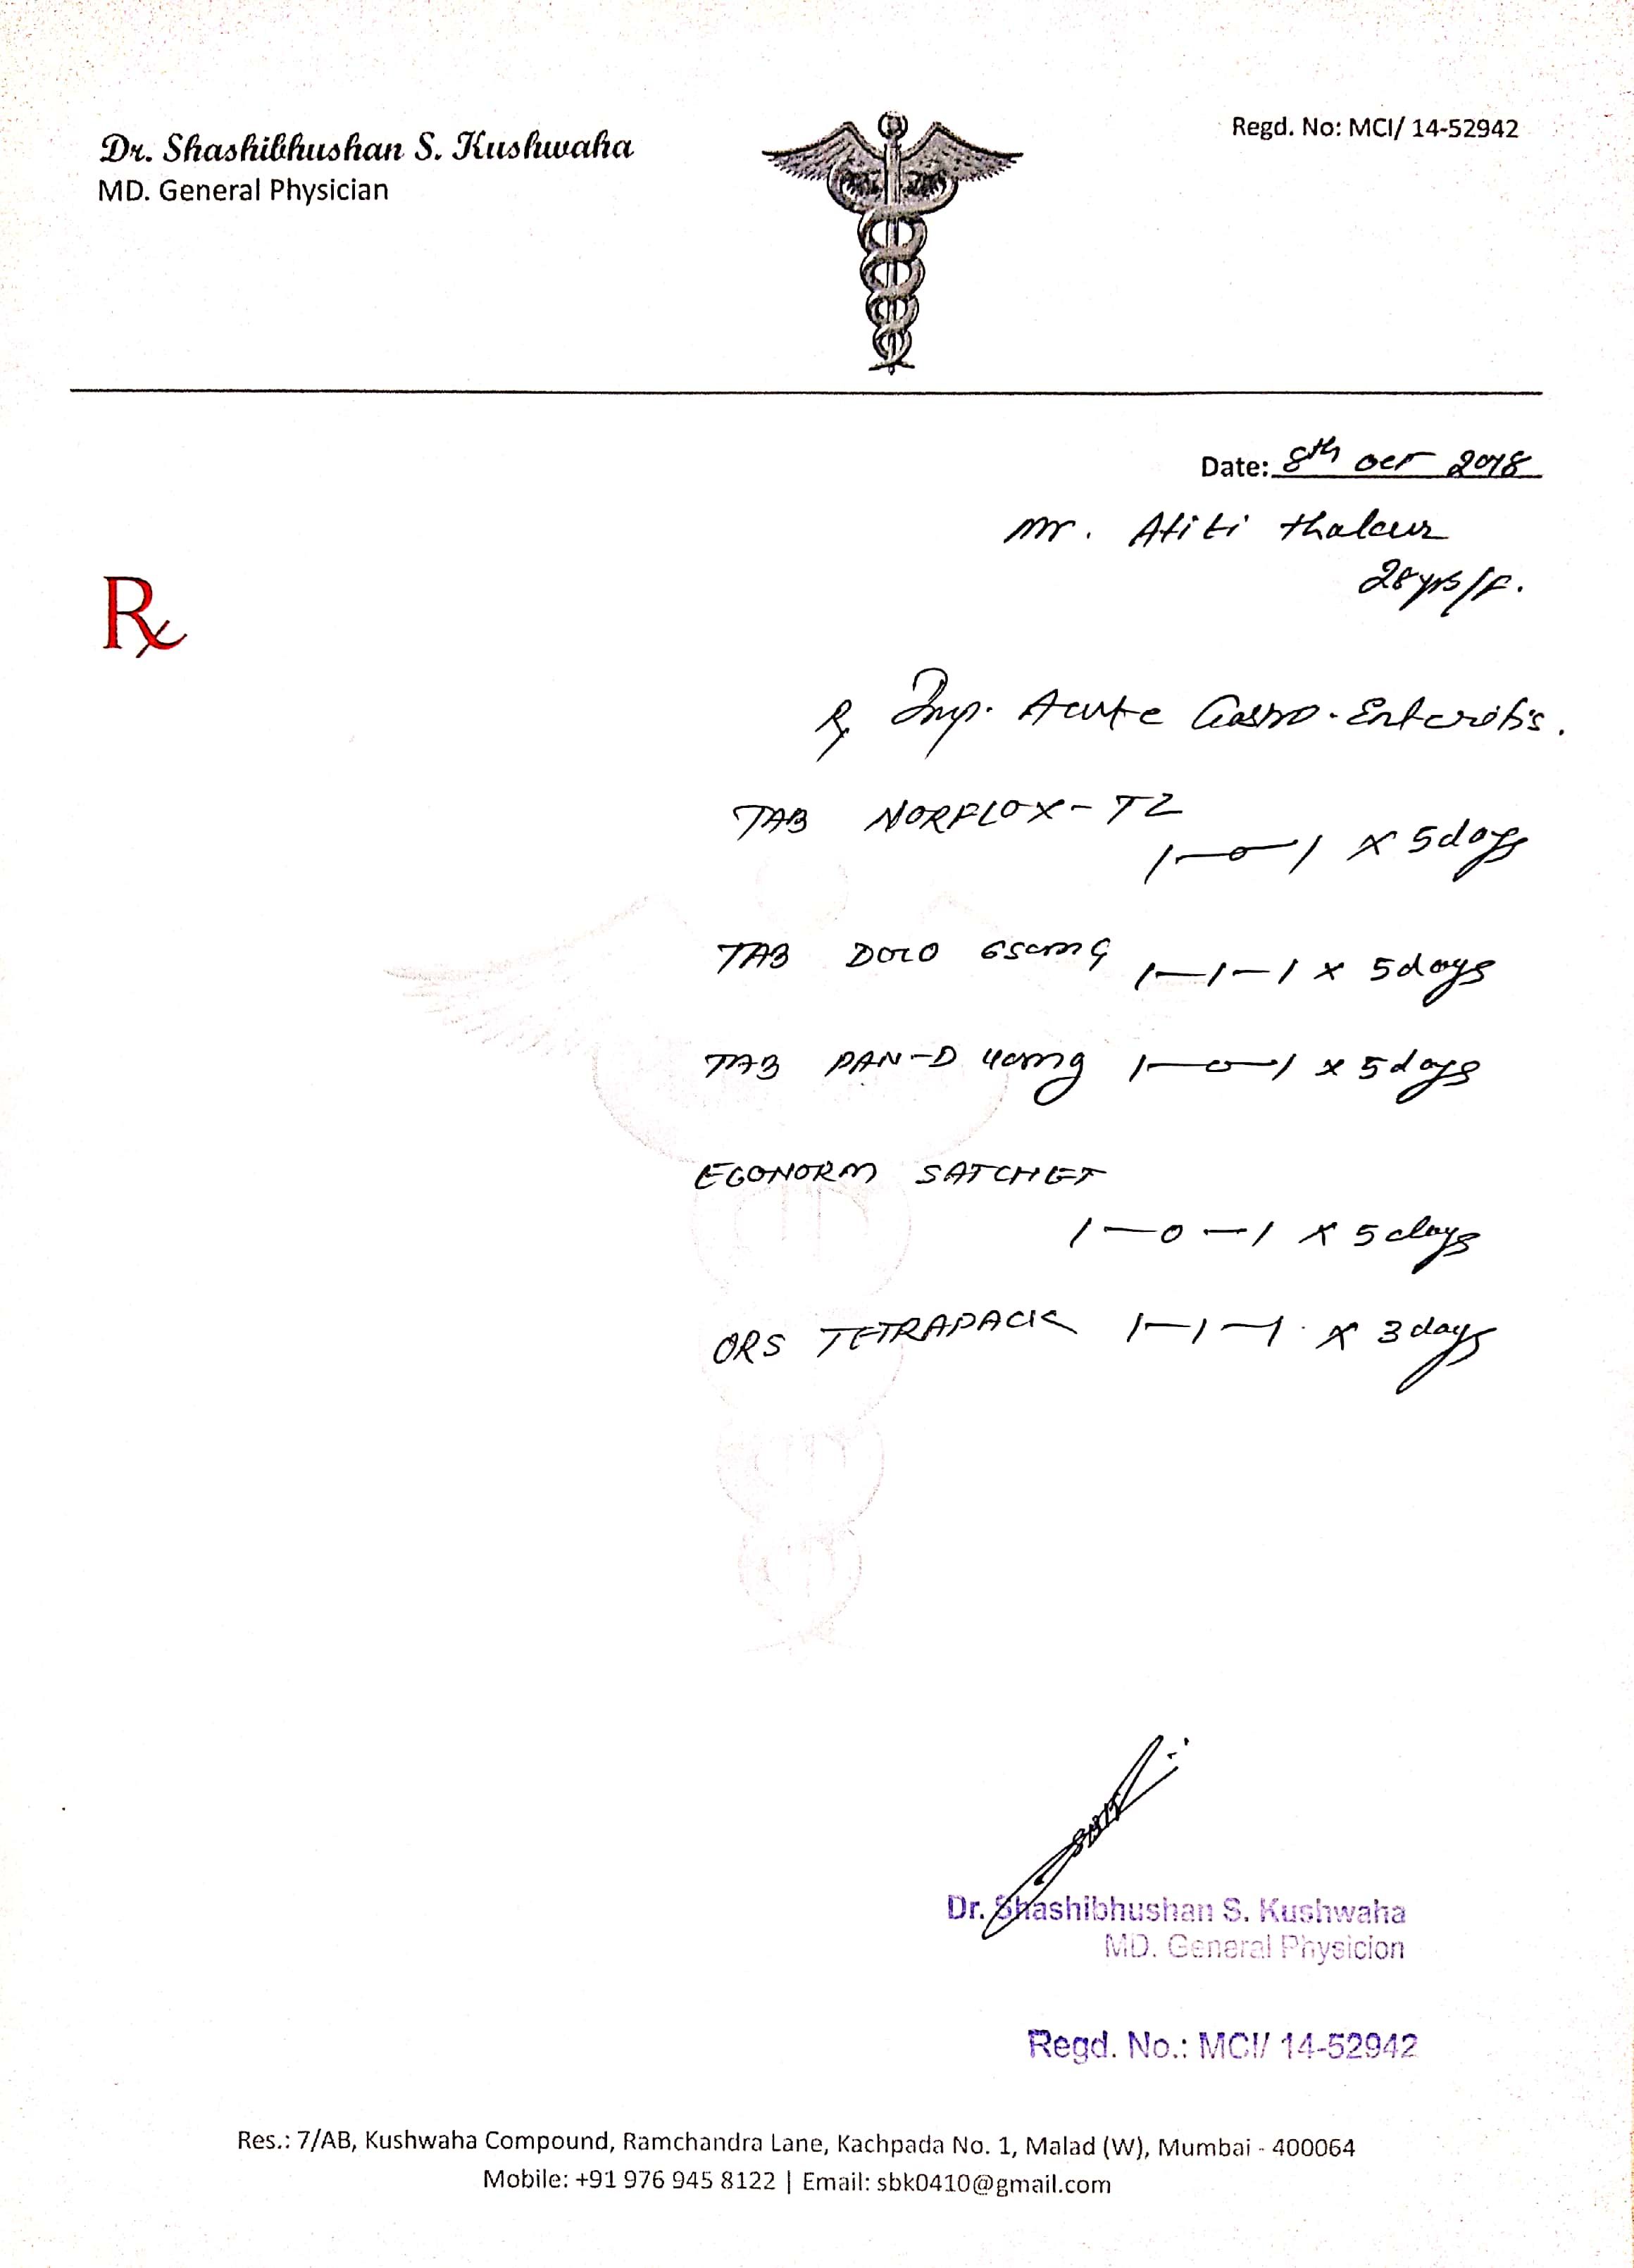 Dr. Shashibhushan S. Kushwaha
MD. General Physician
Regd. No: MCI/ 14-52942
Date: 8th oct 2018
Mr. Atiti Thakur
28yrs/F.
Rx
Rx Imp. Acute Gastro-Enteritis.
TAB NORFLOX-TZ
1—0—1 x 5days
TAB DOLO 650mg 1—1—1 x 5days
TAB PAN-D 40mg 1—0—1 x 5days
ECONORM SATCHET
1—0—1 x 5days
ORS TETRAPACK 1—1—1 x 3days
Dr. Shashibhushan S. Kushwaha
MD. General Physicion
Regd. No.: MCI/ 14-52942
Res.: 7/AB, Kushwaha Compound, Ramchandra Lane, Kachpada No. 1, Malad (W), Mumbai - 400064
Mobile: +91 976 945 8122 | Email: sbk0410@gmail.com